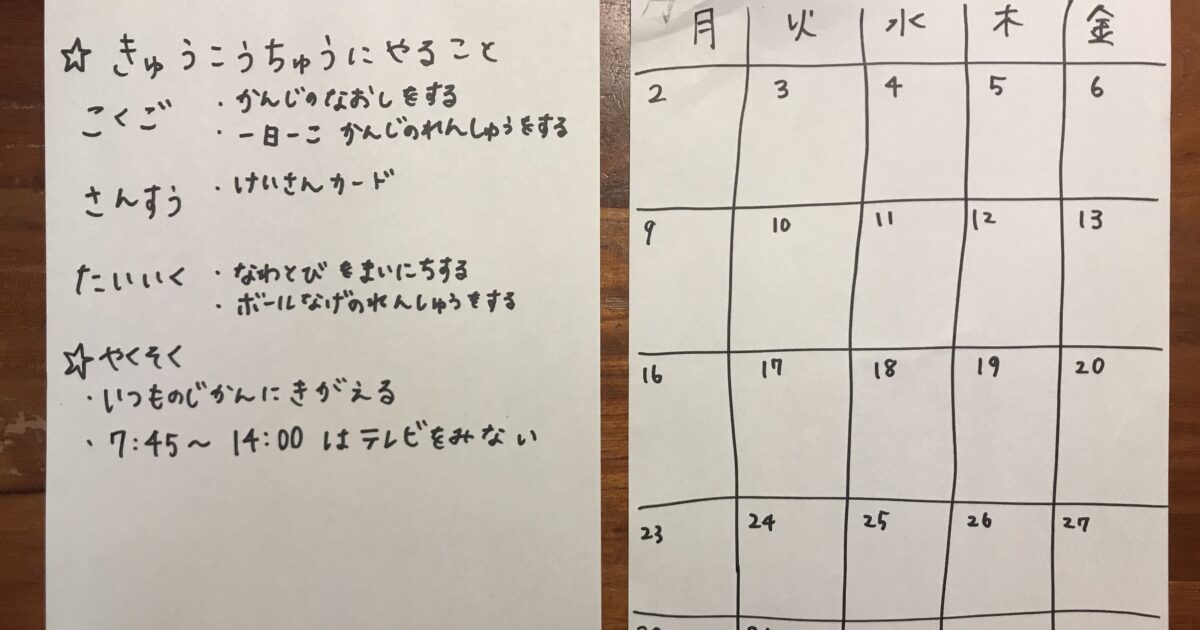 ☆ きゅうこうちゅうにやること
こくご
・かんじのなおしをする
・一日一こ かんじのれんしゅうをする
さんすう
・けいさんカード
たいいく
・なわとびをまいにちする
・ボールなげのれんしゅうをする
☆やくそく
・いつものじかんにきがえる
・7:45〜 14:00 はテレビをみない
月 火 水 木 金
2 3 4 5 6
9 10 11 12 13
16 17 18 19 20
23 24 25 26 27